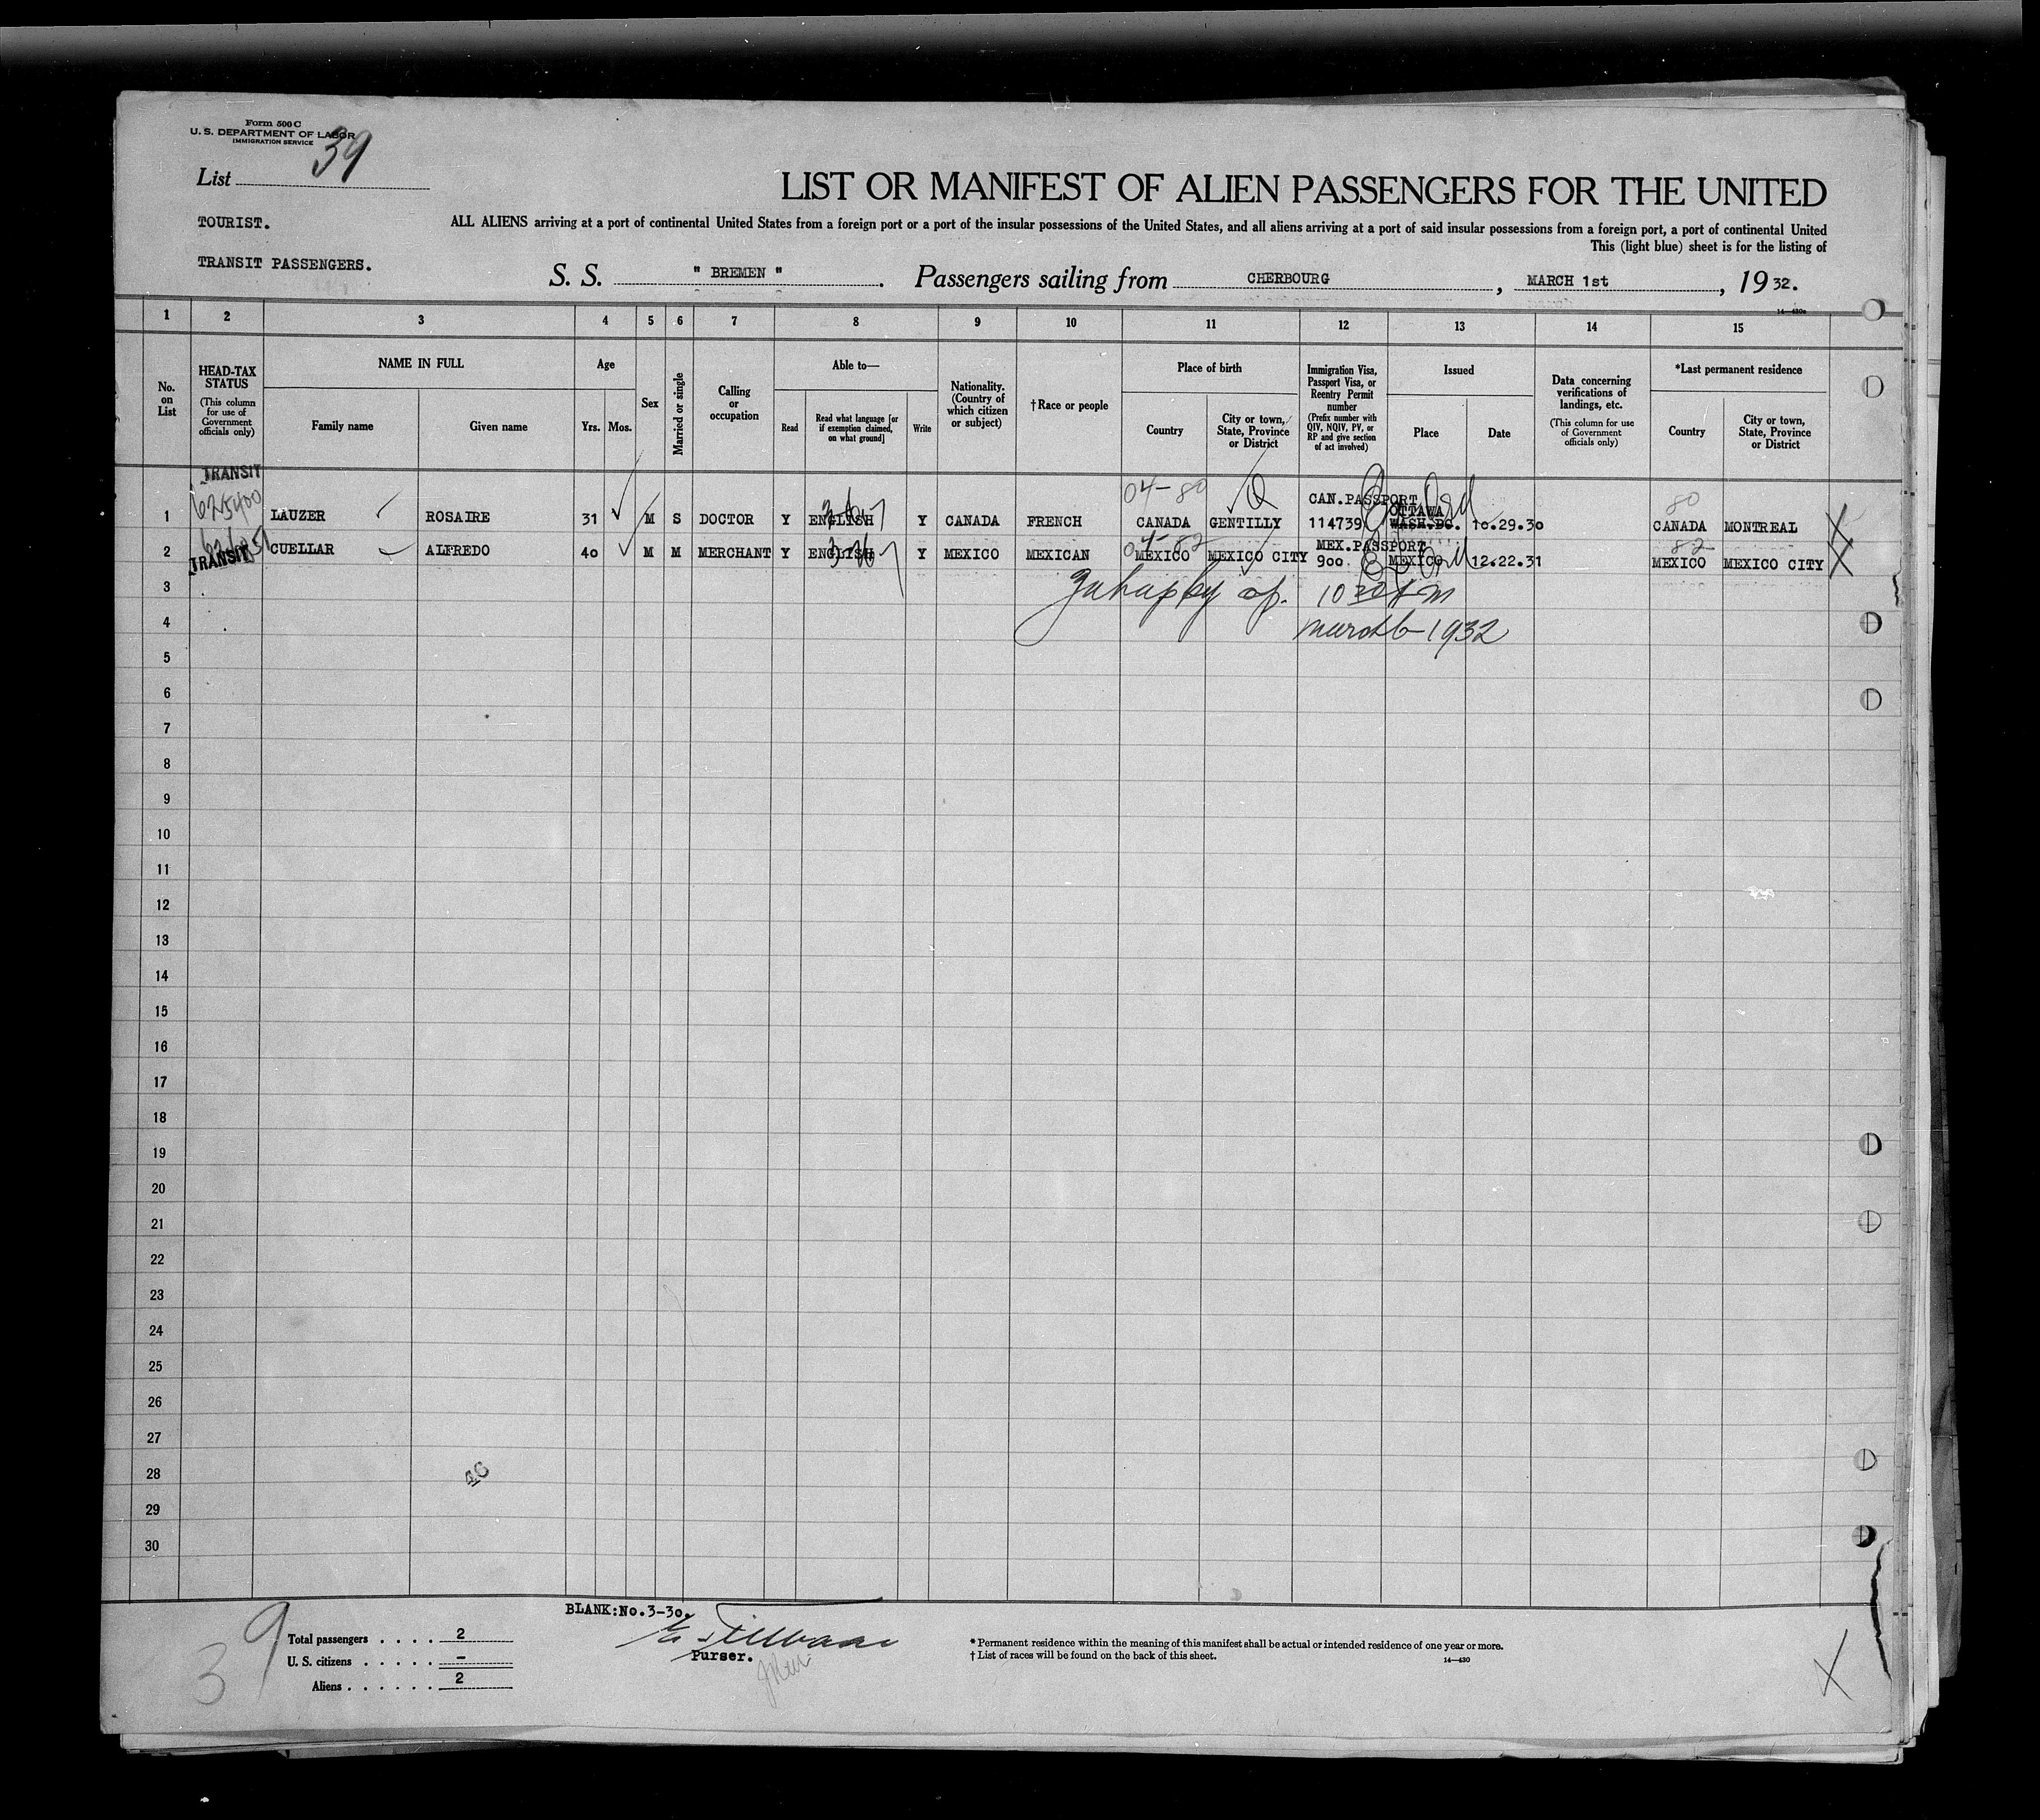 Form 500 C
U. S. DEPARTMENT OF LABOR
IMMIGRATION SERVICE
39
List
LIST OR MANIFEST OF ALIEN PASSENGERS FOR THE UNITED
TOURIST.
ALL ALIENS arriving at a port of continental United States from a foreign port or a port of the insular possessions of the United States, and all aliens arriving at a port of said insular possessions from a foreign port, a port of continental United
This (light blue) sheet is for the listing of
TRANSIT PASSENGERS.
S. S. " BREMEN ". Passengers sailing from CHERBOURG, MARCH 1st, 1932.
1 2 3 4 5 6 7 8 9 10 11 12 13 14 15
No. on List
HEAD-TAX STATUS (This column for use of Government officials only)
NAME IN FULL
Family name
Given name
Age
Yrs. Mos.
Sex
Married or single
Calling or occupation
Able to—
Read
Read what language [or if exemption claimed, on what ground]
Write
Nationality. (Country of which citizen or subject)
†Race or people
Place of birth
Country
City or town, State, Province or District
Immigration Visa, Passport Visa, or Reentry Permit number (Prefix number with QIV, NQIV, PV, or RP and give section of act involved)
Issued
Place
Date
Data concerning verifications of landings, etc. (This column for use of Government officials only)
*Last permanent residence
Country
City or town, State, Province or District
TRANSIT
04-80
CAN.PASSPORT
OTTAWA
80
1 LAUZER ROSAIRE 31 M S DOCTOR Y ENGLISH Y CANADA FRENCH CANADA GENTILLY 114739 WASH.DC. 10.29.30 CANADA MONTREAL
TRANSIT
04-82
MEX.PASSPORT
82
2 CUELLAR ALFREDO 40 M M MERCHANT Y ENGLISH Y MEXICO MEXICAN MEXICO MEXICO CITY 900 MEXICO 12.22.31 MEXICO MEXICO CITY
3
4 1932
5
6
7
8
9
10
11
12
13
14
15
16
17
18
19
20
21
22
23
24
25
26
27
28
29
30
BLANK:No.3-30.
39
Total passengers . . . . 2
U. S. citizens . . . . . –
Aliens . . . . . . 2
Purser.
* Permanent residence within the meaning of this manifest shall be actual or intended residence of one year or more.
† List of races will be found on the back of this sheet.
14—430